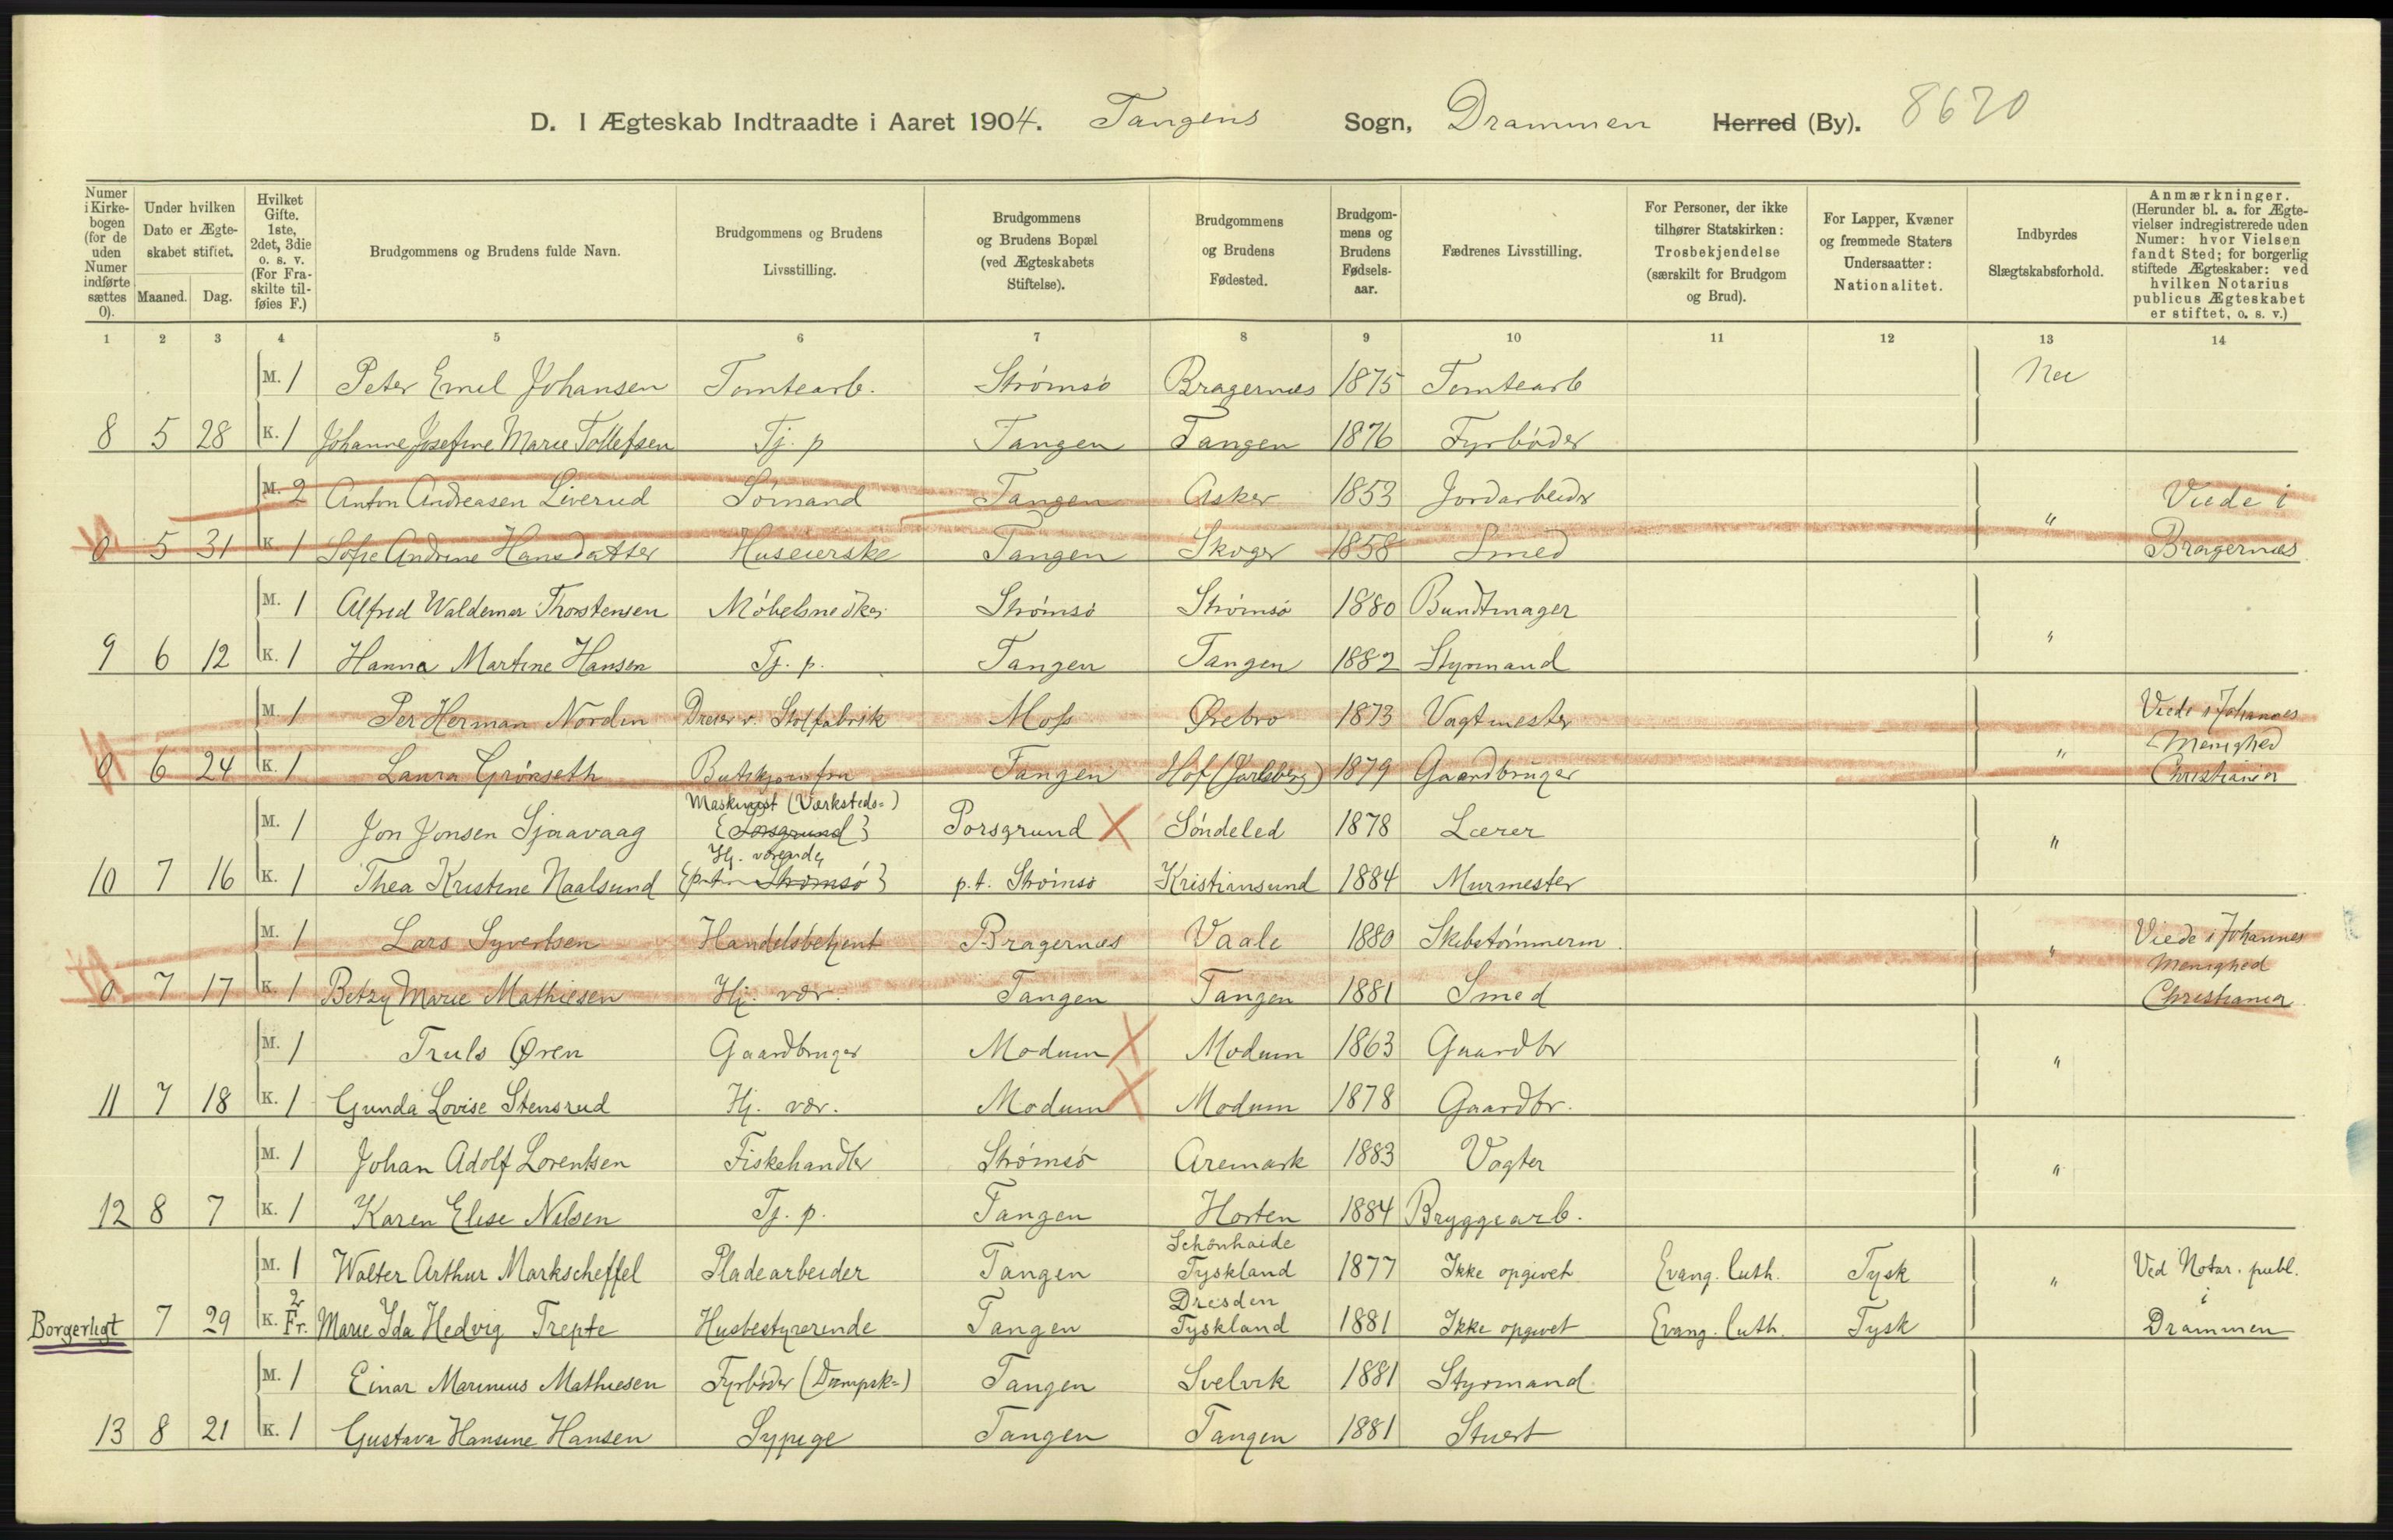 D. I Ægteskab Indtraadte i Aaret 1904. Tangens Sogn, Drammen Herred (By). 8620
Numer i Kirkebogen (for de uden Numer indførte sættes 0). | Under hvilken Dato er Ægteskabet stiftet. Maaned. Dag. | Hvilket Gifte. 1ste, 2det, 3die o. s. v. (For Fraskilte tilføies F.) | Brudgommens og Brudens fulde Navn. | Brudgommens og Brudens Livsstilling. | Brudgommens og Brudens Bopæl (ved Ægteskabets Stiftelse). | Brudgommens og Brudens Fødested. | Brudgommens og Brudens Fødselsaar. | Fædrenes Livsstilling. | For Personer, der ikke tilhører Statskirken: Trosbekjendelse (særskilt for Brudgom og Brud). | For Lapper, Kvæner og fremmede Staters Undersaatter: Nationalitet. | Indbyrdes Slægtskabsforhold. | Anmærkninger. (Herunder bl. a. for Ægtevielser indregistrerede uden Numer: hvor Vielsen fandt Sted; for borgerlig stiftede Ægteskaber: ved hvilken Notarius publicus Ægteskabet er stiftet, o. s. v.)
1 2 3 4 5 6 7 8 9 10 11 12 13 14
M. 1 Peter Emil Johansen Tomtearb. Strømsø Bragernæs 1875 Tomtearb Nei
8 5 28 K. 1 Johanne Josefine Marie Tollefsen Tj. p Tangen Tangen 1876 Fyrbøder
M. 2 Anton Andreasen Liverud Sømand Tangen Asker 1853 Jordarbeider " Viede i
0 5 31 K. 1 Sofie Andrine Hansdatter Huseierske Tangen Skoger 1858 Smed Bragernæs
M. 1 Alfred Waldemar Thorstensen Møbelsnedker Strømsø Strømsø 1880 Bundtmager
9 6 12 K. 1 Hanna Martine Hansen Tj. p. Tangen Tangen 1882 Styrmand "
M. 1 Per Herman Norden Dreier v. Stolfabrik Moss Ørebro 1873 Vagtmester Viede i Johannes
0 6 24 K. 1 Laura Grønseth Tangen Hof (Jarlsberg) 1879 Gaardbruger " Menighed
Christiania
Maskinist (Værksteds=)
M. 1 Jon Jonsen Sjaavaag {Porsgrund} Porsgrund X Søndeled 1878 Lærer "
Hj. værende
10 7 16 K. 1 Thea Kristine Naalsund {p.t. Strømsø} p.t. Strømsø Kristiansund 1884 Murmester
M. 1 Lars Syvertsen Handelsbetjent Bragernæs Vaale 1880 Skibstømmerm. " Viede i Johannes
Menighed
0 7 17 K. 1 Betzy Marie Mathiesen Hj. vær. Tangen Tangen 1881 Smed Christiania
M. 1 Truls Øren Gaardbruger Modum X Modum 1863 Gaardbr "
11 7 18 K. 1 Gunda Lovise Stensrud Hj. vær. Modum X Modum 1878 Gaardbr.
M. 1 Johan Adolf Lorentsen Fiskehandler Strømsø Aremark 1883 Vagter "
12 8 7 K. 1 Karen Elise Nilsen Tj. p. Tangen Horten 1884 Bryggearb.
Schönhaide
M. 1 Walter Arthur Markscheffel Pladearbeider Tangen Tyskland 1877 Ikke opgivet Evang. luth. Tysk " Ved Notar. publ.
2 Dresden i
Borgerligt 7 29 K. Fr. Marie Ida Hedvig Trepte Husbestyrerende Tangen Tyskland 1881 Ikke opgivet Evang. luth. Tysk Drammen
M. 1 Einar Marinius Mathiesen Fyrbøder (Dampsk=) Tangen Svelvik 1881 Styrmand
13 8 21 K. 1 Gustava Hansine Hansen Sypige Tangen Tangen 1881 Stuert